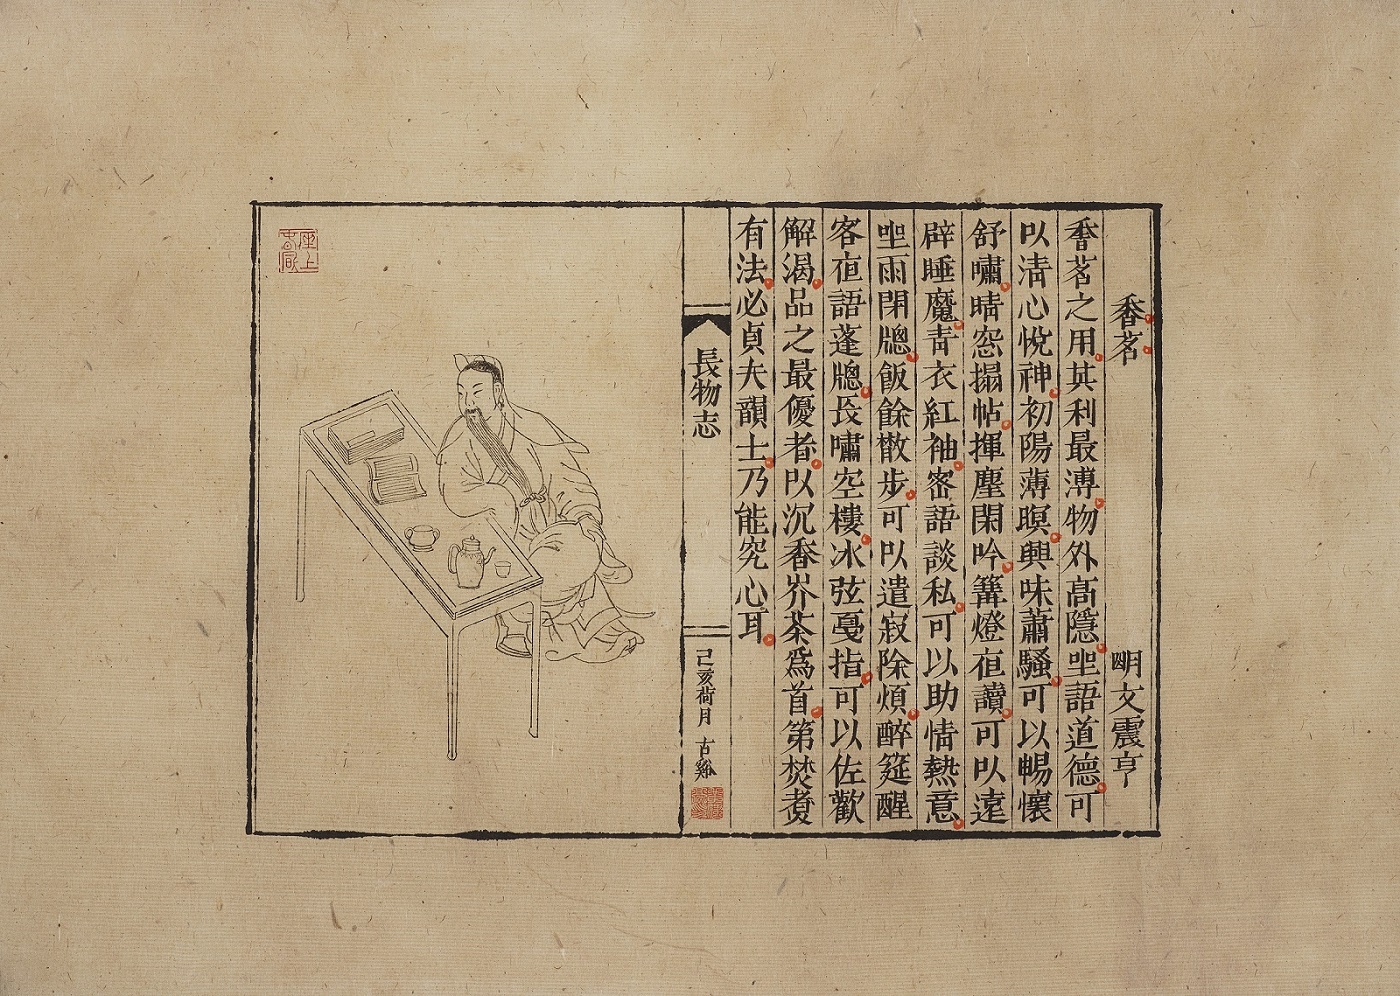 香茗 明文震亨
香茗之用其利最溥物外高隱坐語道德可
以淸心悅神初陽薄暝興味蕭騷可以暢懷
舒嘯晴窓搨帖揮塵閑吟篝燈夜讀可以遠
辟睡魔靑衣紅袖密語談私可以助情熱意
坐雨閉牕飯餘散步可以遣寂除煩醉筵醒
客夜語蓬牕長嘯空樓冰弦戞指可以佐歡
解渴品之最優者以沉香岕茶爲首第焚煑
有法必貞夫韻士乃能究心耳
長物志
己亥荷月 古谿